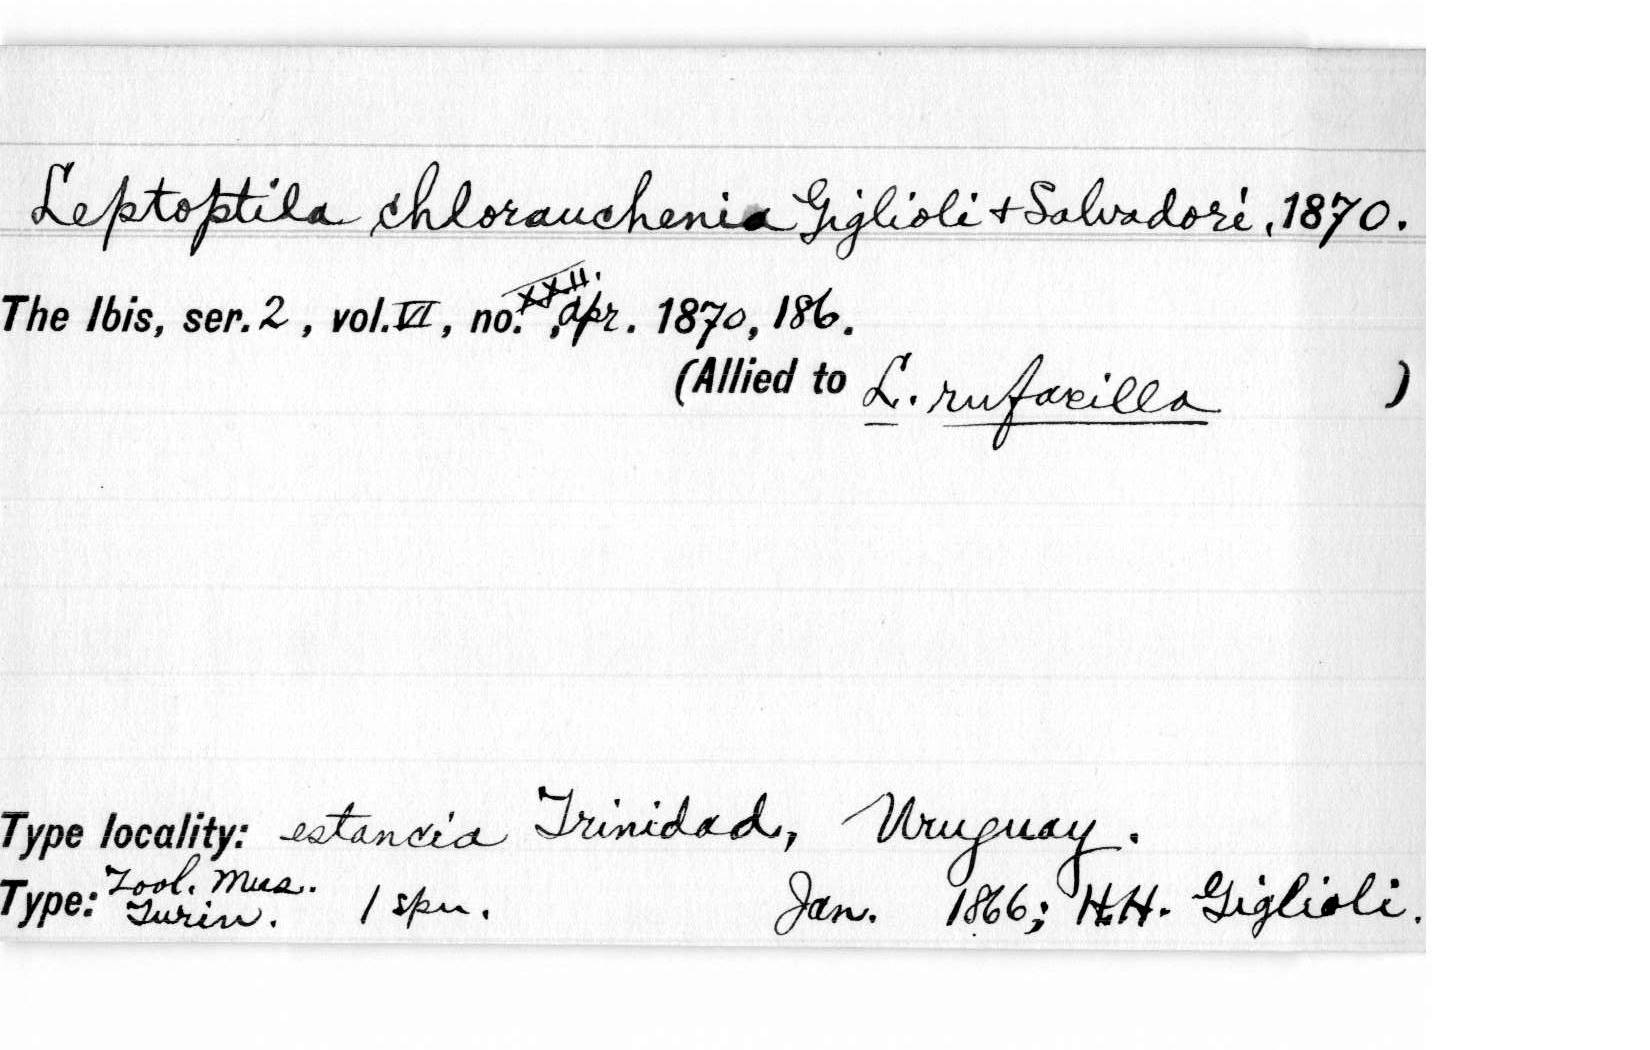 Leptoptila chlorauchenia Giglioli + Salvadori, 1870.
The Ibis, ser. 2, vol. VI, no. XXII., Apr. 1870, 186.
(Allied to L. rufaxilla )
Type locality: estancia Trinidad, Uruguay.
Type: Zool. Mus. Turin. 1 spn. Jan. 1866; H.H. Giglioli.